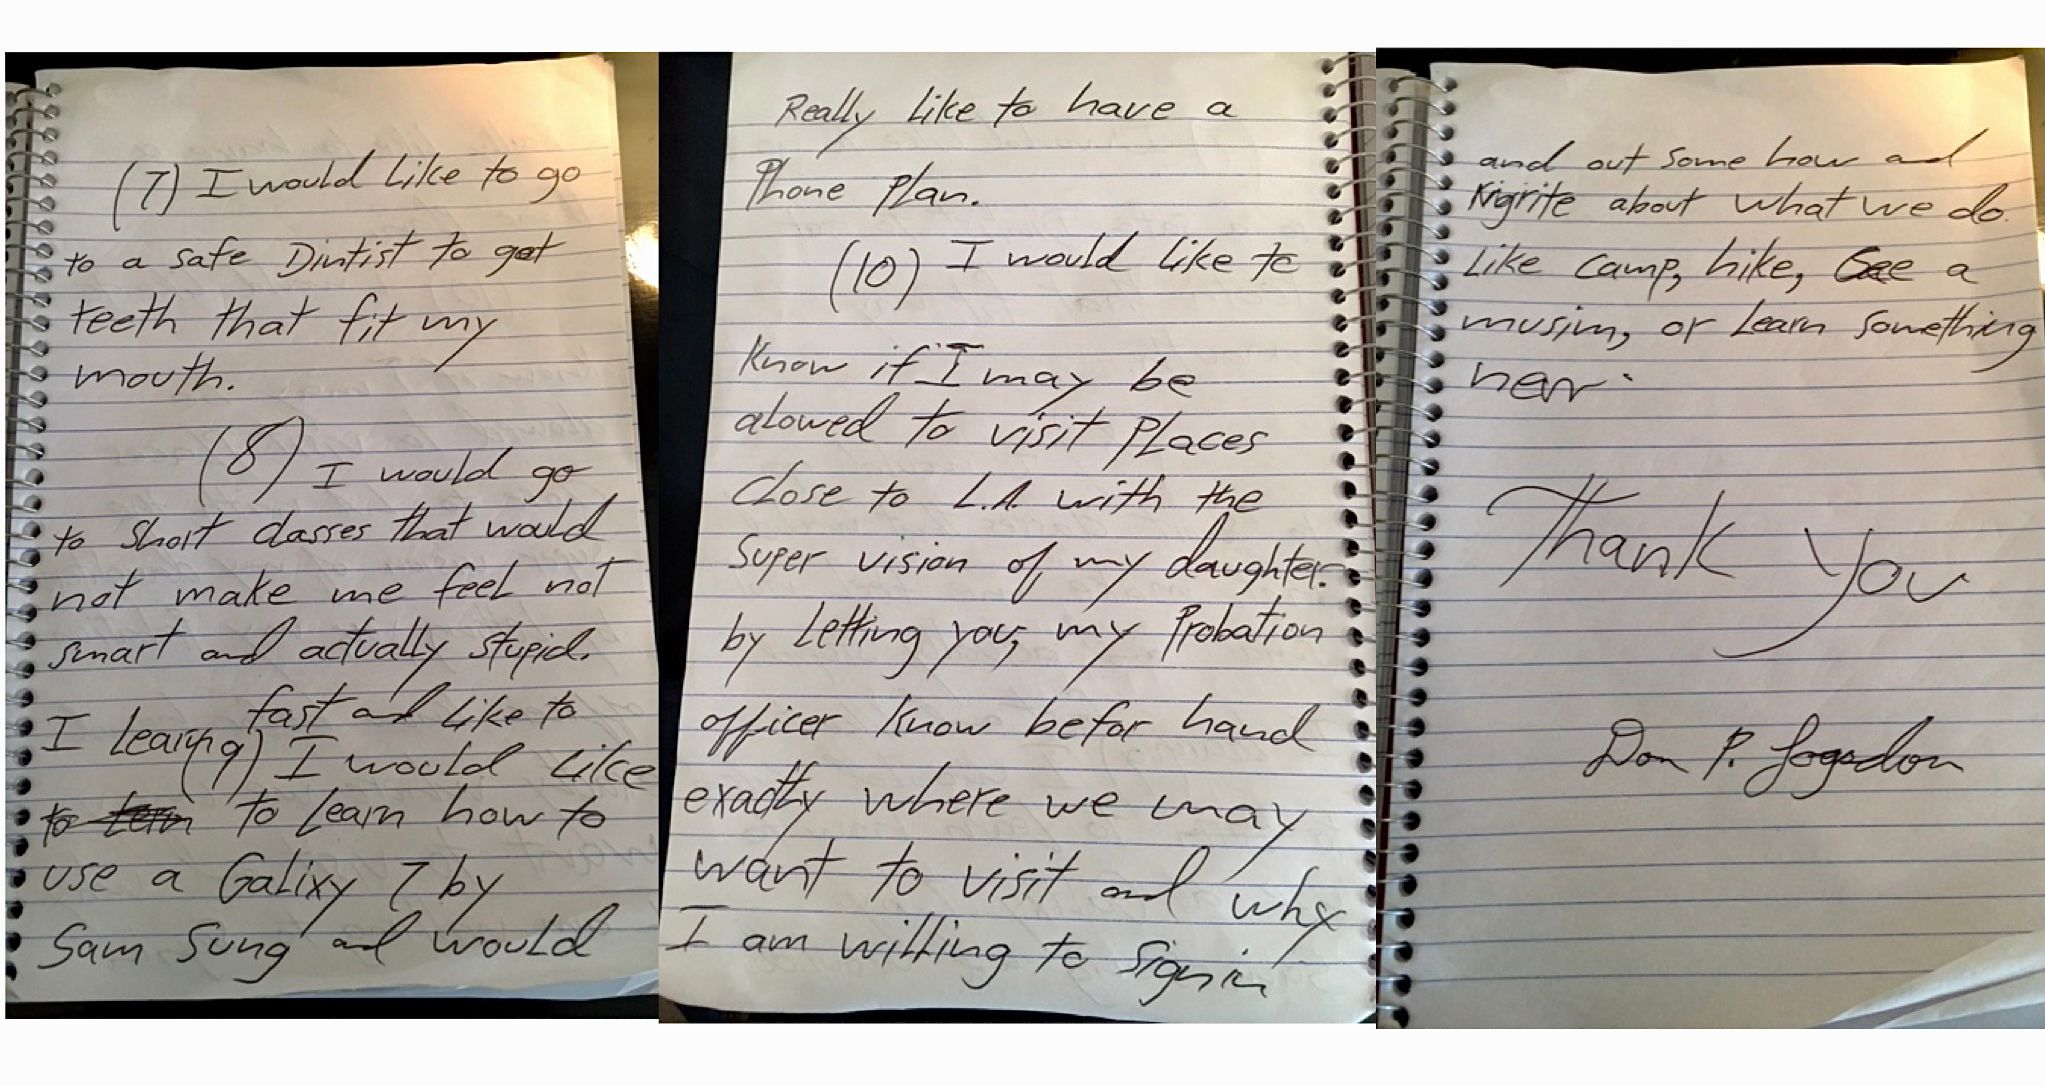 (7) I would Like to go
to a safe Dintist to get
teeth that fit my
mouth.
(8) I would go
to short classes that would
not make me feel not
smart and actually stupid.
I learn fast and like to
(9) I would like
to learn how to
use a Galixy 7 by
Sam Sung and would
Really Like to have a
Phone Plan.
(10) I would like to
Know if I may be
alowed to visit Places
Close to L.A. with the
Super vision of my daughter.
by Letting you, my Probation
officer Know befor hand
exactly where we may
want to visit and why
I am willing to sign in
and out some how and
about what we do.
Like camp, hike, See a
musim, or Learn something
new.
Thank You
Don P. Logsdon